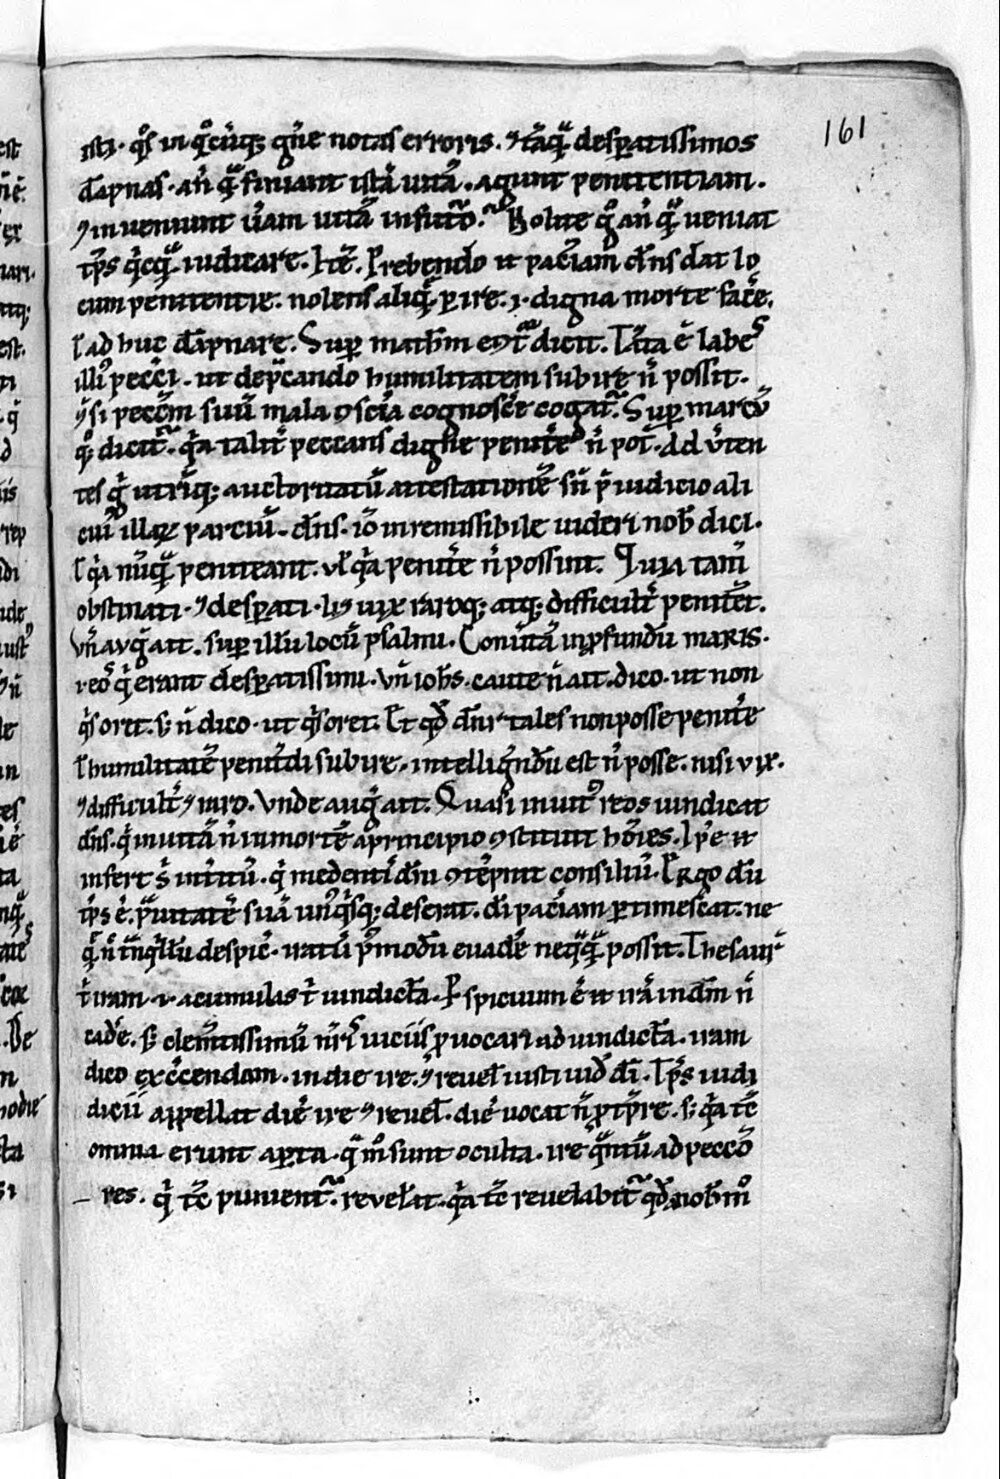 161
isti. q̊s in q̊cūq; gn̄e notas erroris. ⁊ tāq̃ desꝑatissimos
dāpnas. an̄ q̃ finiant istā uitā. agunt penitentiam.
⁊ inueniunt ūam uitā in futuro. Nolite g̊ an̄ q̃ ueniat
tp̄s q̊cq̃ iudicare. Itē. Prebendo .n. pac̄iam dn̄s dat lo
cum penitentie. nolens aliq̄ ꝑire. .i. digna morte facēe.
l ad huc dāpnare. Suꝑ math̄m eñ dicit. Tāta ē labes
illi᷒ pecc̄i. ut dep̄cando humilitatem subire n̄ possit.
⁊ si pecc̄m suū mala ꝯscīa cognosc̄e cogat᷑. Suꝑ marcū
q̊; dicit᷑. q̄a talit̄ peccans digne penit̄e n̄ pot̄. Ad ūten
tes g̊ utriq; auctoritatū attestationē sn̄ p̄iudicio ali
cui᷒ illaꝝ parciū. dn̄s. iō inremissibile uideri nob̄ dici.
l q̄a nūq̃ peniteant. ul̄ q̄a penit̄e n̄ possint. Quia tam̄
obstinati. ⁊ desꝑati. l; uix raroq; atq; difficult̄ penitet̄.
Vn̄ aug̊ ait. suꝑ illū locū psalmi. Conūtā in ꝓfundū maris.
reos q̄ erant desꝑatissimi. Vn̄ ioh̄s. caute n̄ ait. dico. ut non
q̊s oret. s; n̄ dico. ut q̊s oret. Et qd̄ dn̄r tales non posse penit̄e
l humilitatē penitēdi subire. intelligēdū est n̄ posse. nisi uix.
⁊ difficult̄ ⁊ raro. Vnde aug̊ ait. Quasi inuit᷒ reos uindicat
dn̄s. q̄ in uitā n̄ in mortē a principio ꝯstituit hōies. Ip̄e .n.
infert s̄ inuitū. q̄ medenti dn̄i ꝯtēpnit consiliū. Ergo dū
tp̄s ē. p̄uitatē suā un᷒q̊sq; deserat. di pac̄iam ꝑtimescat. ne
q̄ n̄ tn̄q̊llū despic̄. iratū p̄modū euad̄e neq̊q̃ possit. Thesaur᷑
t̄ iram. .i. acumulas t̄ uindictā. Pspicuum ē .n. irā in dm̄ n̄
cad̄e. s; clem̄tissimū nr̄is uiciis ꝓuocari ad uindictā. iram
dico exc̄cendam. in die ire. ⁊ reuel̄ iusti iud̄ di. Tp̄s iudi
dicii appellat diē ire ⁊ reuel̄. diē uocat n̄ ꝓpt̄ire. s; q̄a tc̄
omnia erunt aꝑta. q̃ m̊ sunt oculta. ire q̃ntū ad pecco
res. q̄ tc̄ punient᷑. reuel̄it. q̄a tc̄ reuelabit᷑ qd̄ nob̄ m̊